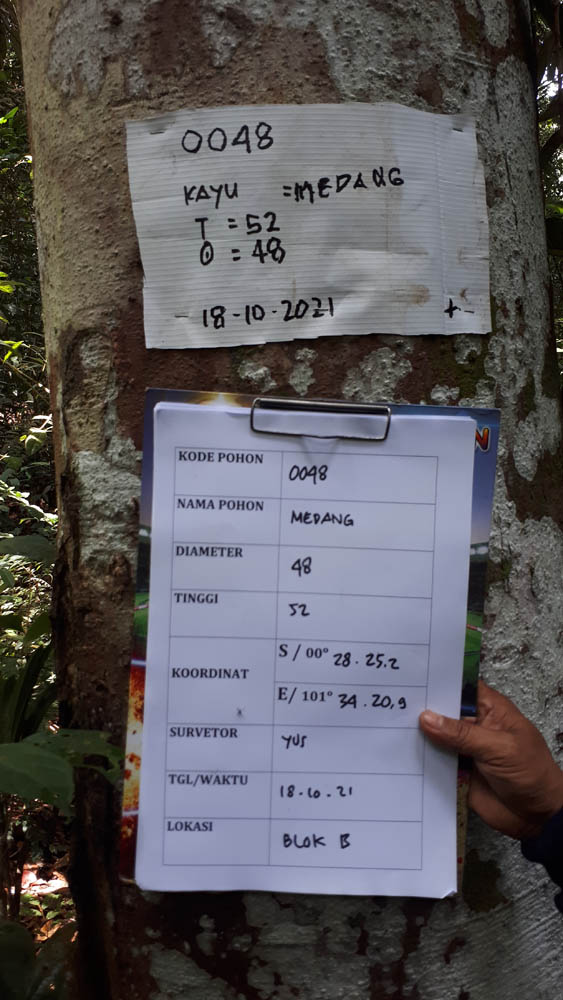 0048
KAYU = MEDANG
T = 52
O = 48
18-10-2021
+-
N
KODE POHON 0048
NAMA POHON MEDANG
DIAMETER 48
TINGGI 52
KOORDINAT S / 00° 28.25.2
E/ 101° 34.20,9
SURVETOR YUS
TGL/WAKTU 18.10.21
LOKASI BLOK B